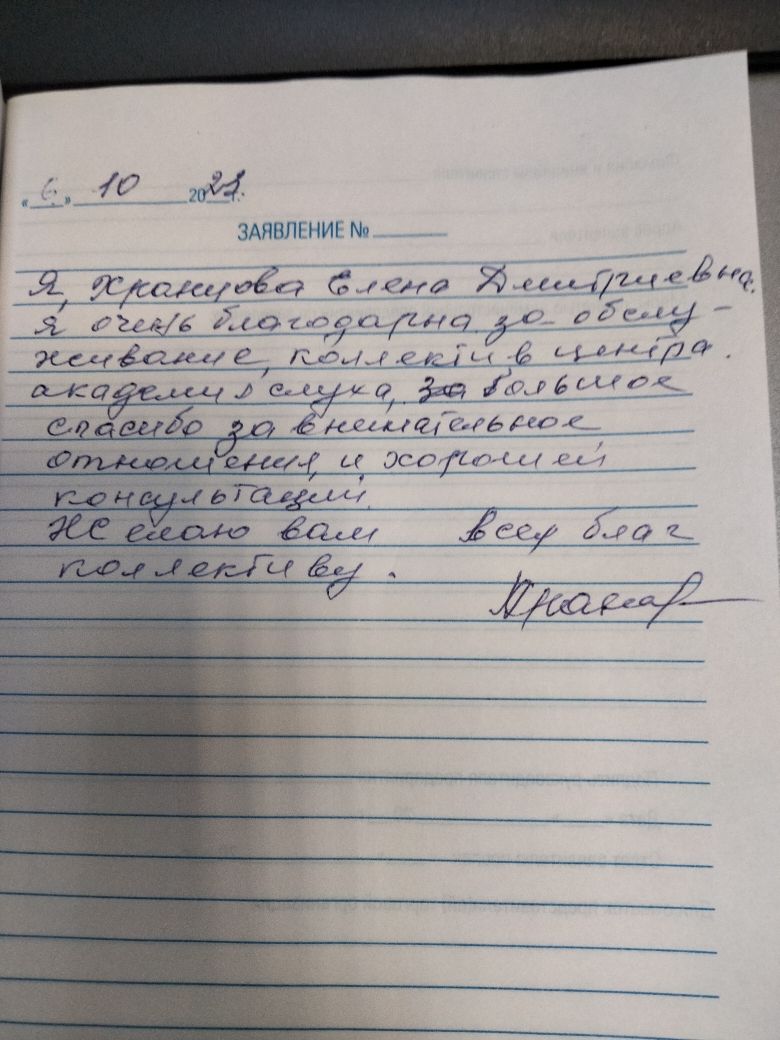 «6.» 10 2023г.
ЗАЯВЛЕНИЕ №
Я, Хранцова Елена Дмитриевна.
я очень благодарна за обслу-
живание, коллектив центра.
академия слуха, за большое
спасибо за внимательное
отношения, и хорошей
консультаций.
Желаю вам всех благ
коллективу.